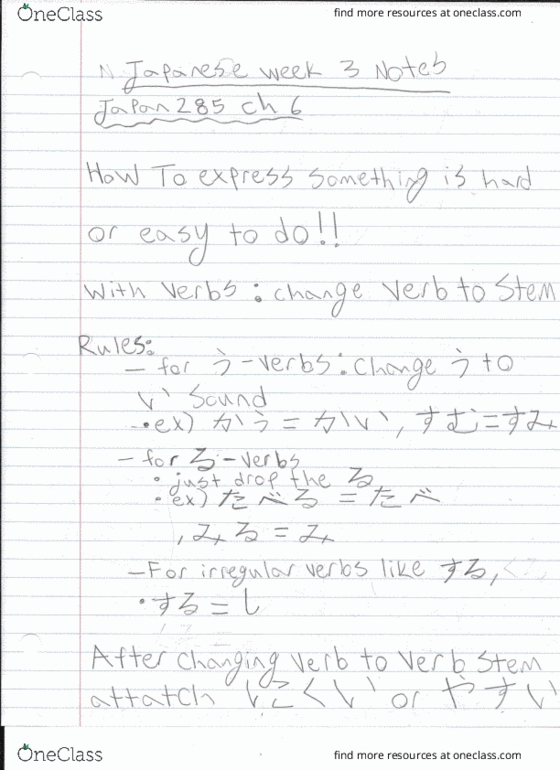 OneClass
find more resources at oneclass.com
N. Japanese week 3 Notes
Japan 285 ch 6
How To express something is hard
or easy to do!!
With Verbs : change Verb to Stem
Rules:
– for う-verbs: change う to
い Sound
•ex) かう = かい, すむ = すみ
– for る-verbs
• just drop the る
• ex) たべる = たべ
, みる = み
–For irregular verbs like する,
•する = し
After changing verb to verb stem
attatch にくい or やすい
OneClass
find more resources at oneclass.com